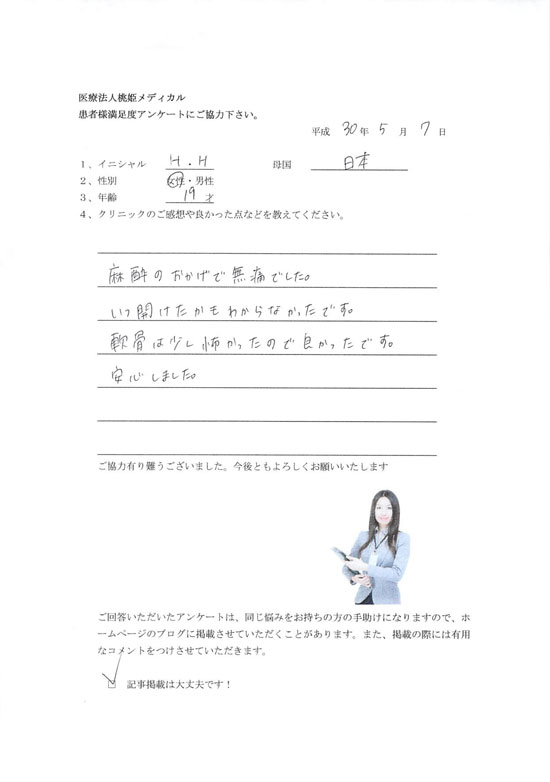 医療法人桃姫メディカル
患者様満足度アンケートにご協力下さい。
平成 30年 5 月 7 日
1、イニシャル H.H 母国 日本
2、性別 女性・男性
3、年齢 19 才
4、クリニックのご感想や良かった点などを教えてください。
麻酔のおかげで無痛でした。
いつ開けたかもわからなかったです。
軟骨は少し怖かったので良かったです。
安心しました。
ご協力有り難うございました。今後ともよろしくお願いいたします
ご回答いただいたアンケートは、同じ悩みをお持ちの方の手助けになりますので、ホ
ームページのブログに掲載させていただくことがあります。また、掲載の際には有用
なコメントをつけさせていただきます。
記事掲載は大丈夫です！